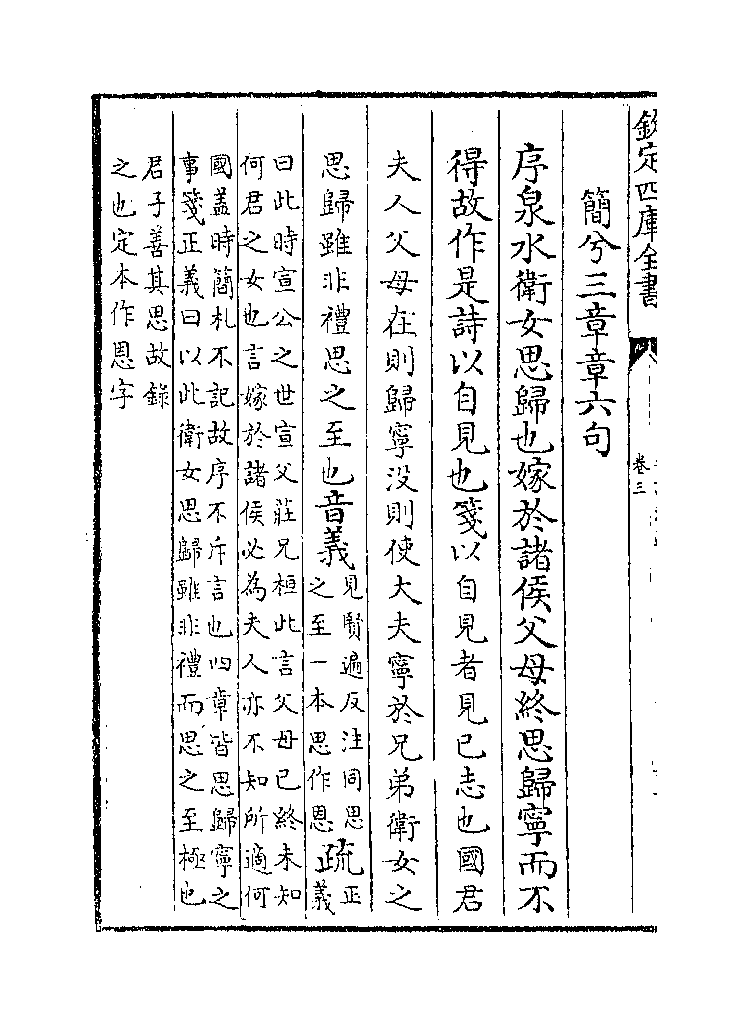 欽定四庫全書
卷三
簡兮三章章六句
序泉水衛女思歸也嫁於諸侯父母終思歸寧而不
得故作是詩以自見也箋以自見者見已志也國君
夫人父母在則歸寧没則使大夫寧於兄弟衛女之
思歸雖非禮思之至也音義
見賢遍反注同思
之至一本思作恩
疏
正
義
曰此時宣公之世宣父莊兄桓此言父母已終未知
何君之女也言嫁於諸侯必為夫人亦不知所適何
國蓋時簡札不記故序不斥言也四章皆思歸寧之
事箋正義曰以此衛女思歸雖非禮而思之至極也
君子善其思故錄
之也定本作恩字